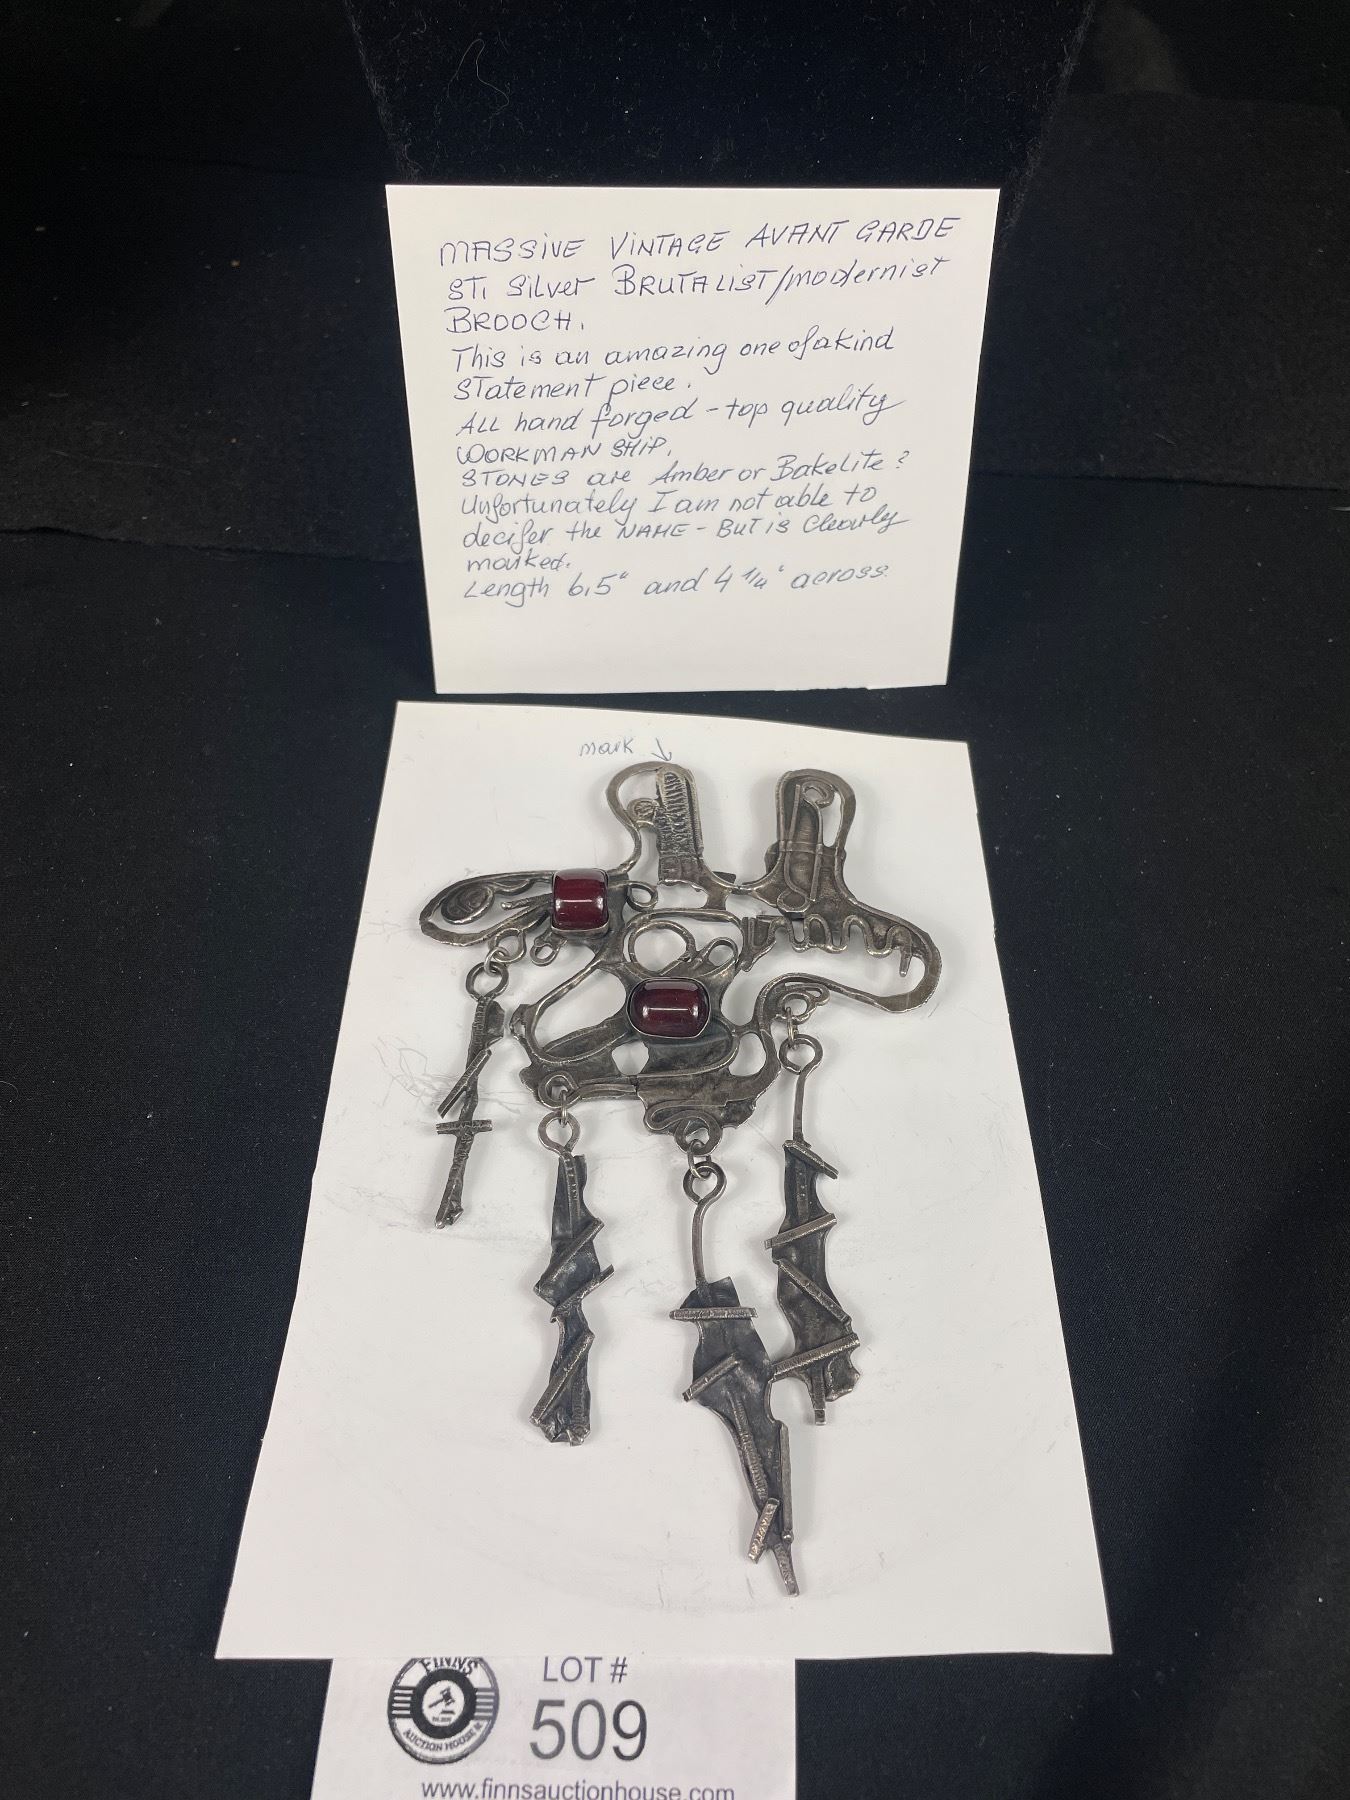 MASSIVE VINTAGE AVANT GARDE
ST. Silver BRUTALIST/modernist
BROOCH.
This is an amazing one of a kind
STatement piece.
ALL hand forged - top quality
WORKMAN SHIP.
STONES are Amber or Bakelite?
Unfortunately I am not able to
decifer the NAME - BUT is Clearly
marked.
Length 6,5" and 4 1/4" across.
mark
FINNS
AUCTION HOUSE
LOT #
509
www.finnsauctionhouse.com